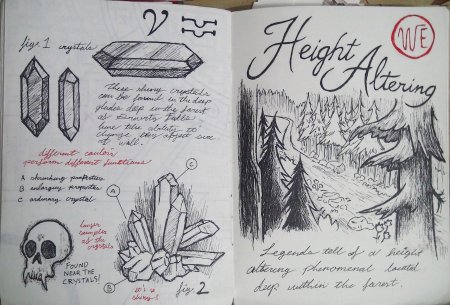 fig. 1 crystals
These shiny crystals
can be found in the deep
glades deep in the forest
of Gravity Falls
have the ability to
change they object size
at will.
different coulors
perform different functions
A shrinking properties
B enlarging properties
C ordinary crystal
A
C
B
larger
samples
of the
crystals
FOUND
NEAR THE
CRYSTALS!
it's a
thing!
fig 2
WE
Height
Altering
Legends tell of a height
altering phenomenal located
deep within the forest.